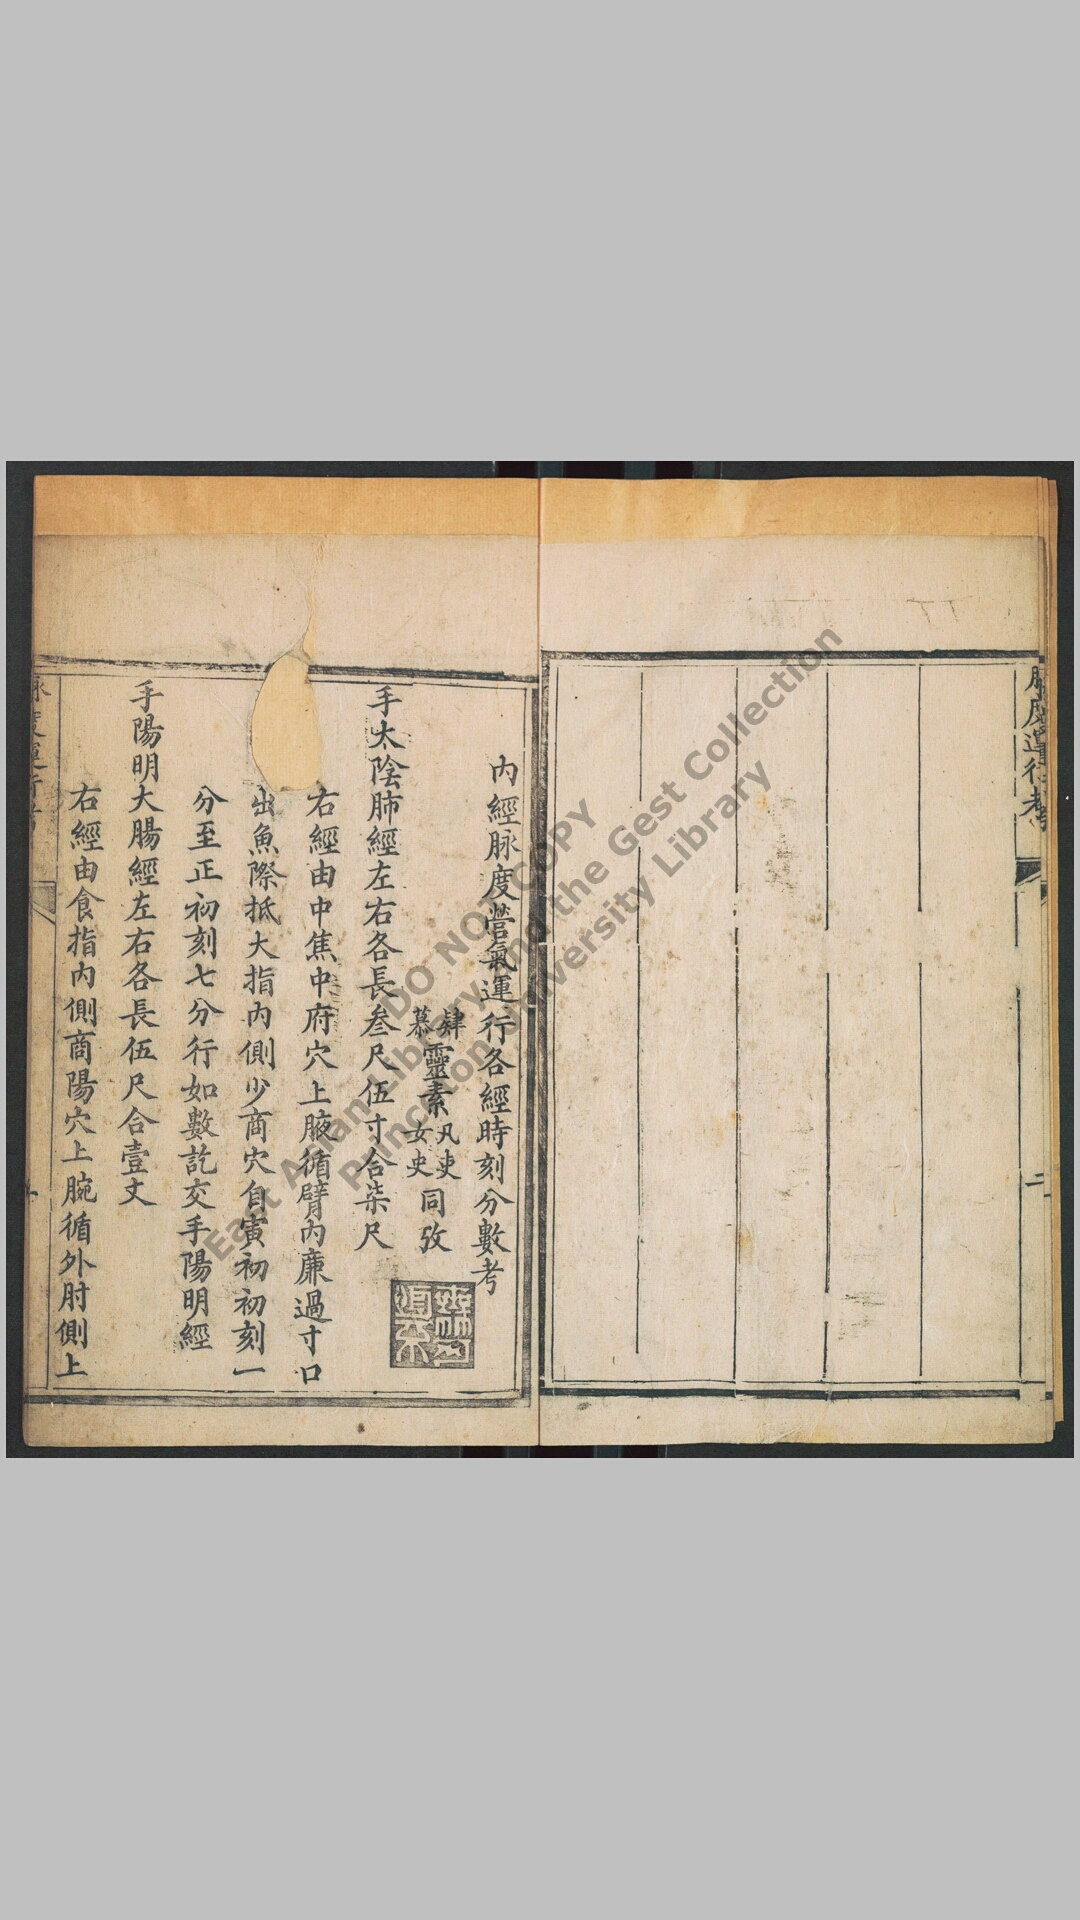 脉度運行考
二
內經脉度營氣運行各經時刻分數考
肄慕靈素
女史同攷
手太陰肺經左右各長叁尺伍寸合柒尺
右經由中焦中府穴上腋循臂內廉過寸口
出魚際抵大指內側少商穴自寅初初刻一
分至正初刻七分行如數訖交手陽明經
手陽明大腸經左右各長伍尺合壹丈
右經由食指內側商陽穴上腕循外肘側上
DO NOT COPY
East Asian Library and the Gest Collection
Princeton University Library